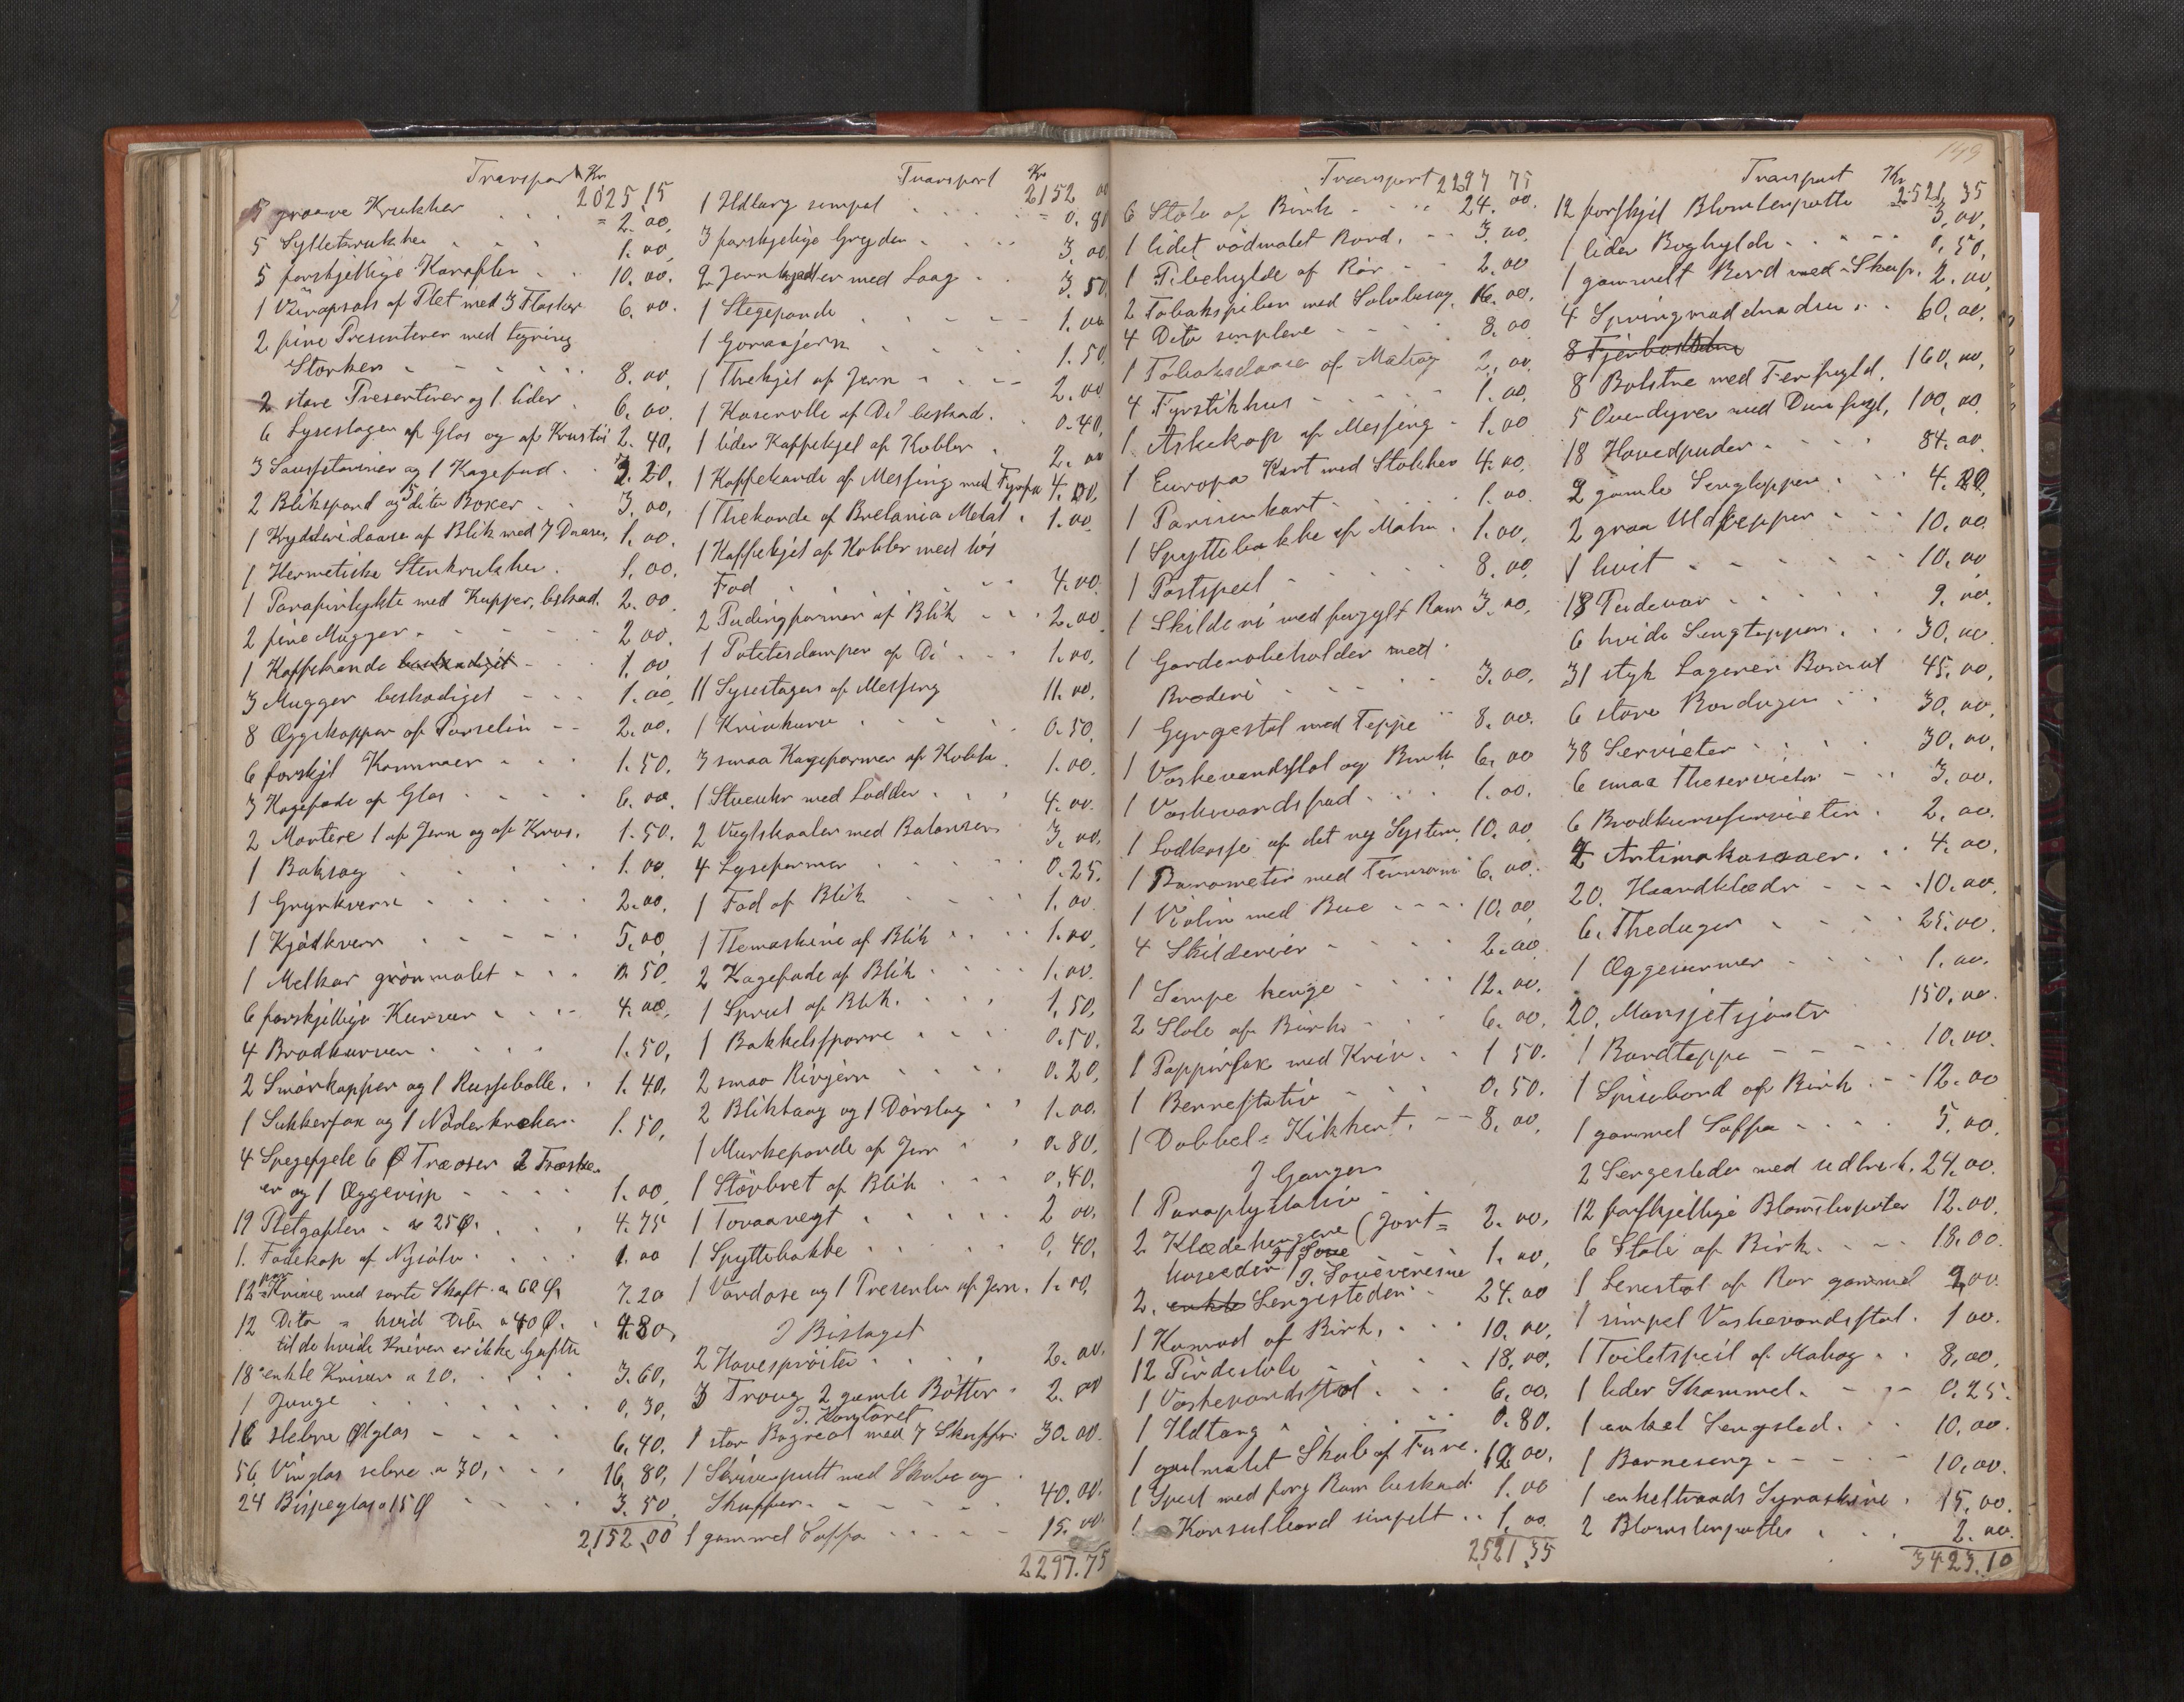 Transport Kr 2025,15
5 graave Krukker = 2.00,
5 Syltekrukker 1.00,
5 forskjellige Karafler 10.00.
1 Vinopsats af Plet med 3 Flasker 6.00.
2 fine Presenterer med tegning
Storken 8.00,
2 store Presenterer og 1 liden 6.00.
6 Lysestager af Glas og af Krustøi 2.40,
3 Sausseteriner og 1 Kagefad 2.20,
2 Blikspand og 5 dito Boxer 3.00,
1 Krydderidaase af Blik med 7 Daaser, 1.00.
1 Hermetiske Stenkrukker. 1.00.
1 Parafinlykte med Kupper, beskad. 2.00.
2 fine Mugger 2.00.
1 Kaffekande beskadiget 1.00
3 Mugger beskadiget 1.00,
8 Æggekopper af Porselin 2.00.
6 forskjl Kummaer 1.50.
3 Kagefade af Glas 6.00,
2 Mortere 1 af Jern og af Krus. 1.50.
1 Boksag 1.00.
1 Grynkvern 2.00,
1 Kjødkvern 5.00,
1 Melkar grønmalet 0.50,
6 forskjellige Kurver 4.00,
4 Brødkurver 1.50,
2 Smørkopper og 1 Russebolle. 1.40,
1 Sukkersax og 1 Nødeknekker 1.50,
4 Spegefjele 6 Træoser 2 Træske-
er og 1 Æggevisp 1.00,
19 Pletgafler a 25 Ø. 4.75
1. Fadekop af Nysølv 1.00
12 par Knive med sorte Skaft a 60 Ø, 7.20
12 Dito " hvid Dito a 40 Ø. 4.80,
til de hvide Kniver er ikke Gafler
18 enkle Kniver a 20. 3.60,
1 Junge 0.30,
16 slebne Ølglas 6.40.
56 Vinglas slebne a 30, 16,80,
24 Bispeglas a 15 Ø 3.50
2,152,00
Transport Kr 2152 00
1 Ildtang simpel = 0.80
3 forskjelige Gryder 3.00
2 Jernkjedler med Laag 3.50
1 Stegepande 1.00
1 Goraajern 1.50
1 Thekjel af Jern 2.00
1 Kaserolle af Do beskad. 0.40,
1 liden Kaffekjel af Kobber 2.00
1 Kaffekande af Messing med Fyrfa 4.00,
1 Thekande af Bretania Metal 1.00.
1 Kaffekjel af Kobber med løs
Fod 4.00.
2 Pudingformer af Blik 2.00
1 Potetesdamper af Do 1.00,
11 Lysestager af Messing 11.00,
1 Knivkurv 0.50,
3 smaa Kageformer af Kobber. 1.00,
1 Stueuhr med Lodder 4.00.
2 Vegtskaaler med Balanser 3.00,
4 Lyseformer 0.25.
1 Fad af Blik 1.00
1 Themaskine af Blik 1.00,
2 Kagefade af Blik 1.00.
1 Sprut af Blik. 1.50,
1 Bakkelsspore 0.50.
2 smaa Rivjern 0.20,
2 Bliklaag og 1 Dørslag 1.00.
1 Murkepande af Jern 0.80,
1 Støvbret af Blik 0,40,
1 Tovaavegt 2 00,
1 Spyttebakke 0,40,
1 Vardose og 1 Presenter af Jern. 1.00,
I Bislaget
2 Havesprøiter 2.00,
3 Traug 2 gamle Bøtter 2.00
I. Kontoret
1 stor Bogreol med 7 Skuffer 30.00.
1 Skrivepult med Skabe og
Skuffer 40.00.
1 gammel Soffa 15.00
2297.75
Transport 2297 75
6 Stole af Birk 24.00.
1 lidet rødmalet Bord. 3.00.
1 Pibehylde af Rør 2.00
2 Tobakspiber med Sølvbesag 16.00,
4 Dito simplere 8.00
1 Tobaksdaase af Mahog 2,00,
4 Fyrstikhus 1.00,
1 Askekop af Messing 1.00
1 Europa Kart med Stokker 4.00,
1 Pariserkart 1.00
1 Spyttebakke af Malm 1.00,
1 Postspeil 8.00,
1 Skilderi med forgylt Ram 3.00,
1 Garderobeholder med
Broderi 3.00.
1 Gyngestol med Teppe 8.00.
1 Vaskevandsstol og Birk 6.00
1 Vaskevandsfad 1.00.
1 Lodkasse af det ny System 10.00
1 Barometer med Termom 6.00.
1 Violin med Bue 10.00,
4 Skilderier 2.00.
1 Lampe henge 12.00,
2 Stole af Birk 6.00,
1 Pappirsax med Kniv. 1 50.
1 Benrestativ 0.50.
1 Dobbel= Kikkert. 8.00,
I Gangen
1 Paraplystativ 2.00,
2 Klædehengere (Jort=
hoveder) 1.00,
I. Soveværesne
2. enkle Sengesteder 24.00
1 Komod af Birk, 10.00,
12 Pindestole 18,00,
1 Vaskevandsstol 6.00,
1 Ildtang 0.80.
1 gulmalet Skab af Furu. 12.00,
1 Speil med forg Ram beskad. 1.00
1 Konsulbord simpelt 1.00.
2,521,35
149
Transport Kr 2521,35
12 forskjel Blomsterpotte 3,00,
1 liden Boghylde 0,50,
1 gammelt Bord med Skuf. 2.00,
4 Springmadrasser 60,00,
8 Fjerbolstre
8 Bolstre med Fer fyld. 160,00,
5 Overdyner med Dun fyl, 100,00
18 Hovedpuder 84.00
2 gamle Sengtepper 4.00,
2 graa Uldtepper 10.00.
1 hvit 10,00
18 Pudevar 9.00.
6 hvide Sengtepper 30,00
31 styk Lagener Bomul 45,00,
6 store Borduger 30,00,
38 Servieter 30,00,
6 smaa Theservieter 3.00.
6 Brødkurvservieter 2,00.
4 Antimakassaer. 4.00,
20. Haandklæder 10.00,
6. Theduger 25.00
1 Æggevarmer 1.00.
20. Mansjetsjorte 150,00.
1 Bordteppe 10,00.
1 Spisebord af Birk 12.00
1 gammel Soffa 5,00.
2 Sengesteder med udtrek. 24.00.
12 forskjellige Blomsterpoter 12.00.
6 Stole af Birk 18.00.
1 Lenestol af Rør gammel 2,00
1 simpel Vaskevandsstol. 1 00.
1 Toiletspeil af Mahog 8,00,
1 liden Skammel. 0.25.
1 enkel Sengsted. 10,00.
1 Barneseng 10,00.
1 enkeltraads Symaskine 15,00.
2 Blomsterpotter 2.00.
3423.10